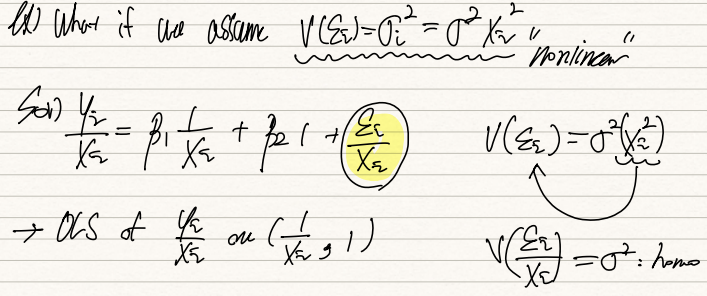 ex) What if we assume V(εi) = σi² = σ² Xi² "nonlinear"
Sol) Yi/Xi = β1 1/Xi + β2 1 + εi/Xi
V(εi) = σ²(Xi²)
→ OLS of Yi/Xi on (1/Xi, 1)
V(εi/Xi) = σ² : homo